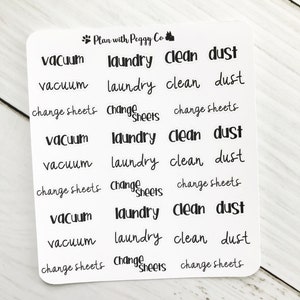 Plan with Peggy Co
vacuum laundry clean dust
vacuum laundry clean dust
change sheets Change Sheets change sheets
vacuum laundry clean dust
vacuum laundry clean dust
change sheets Change Sheets change sheets
vacuum laundry clean dust
vacuum laundry clean dust
change sheets Change Sheets change sheets